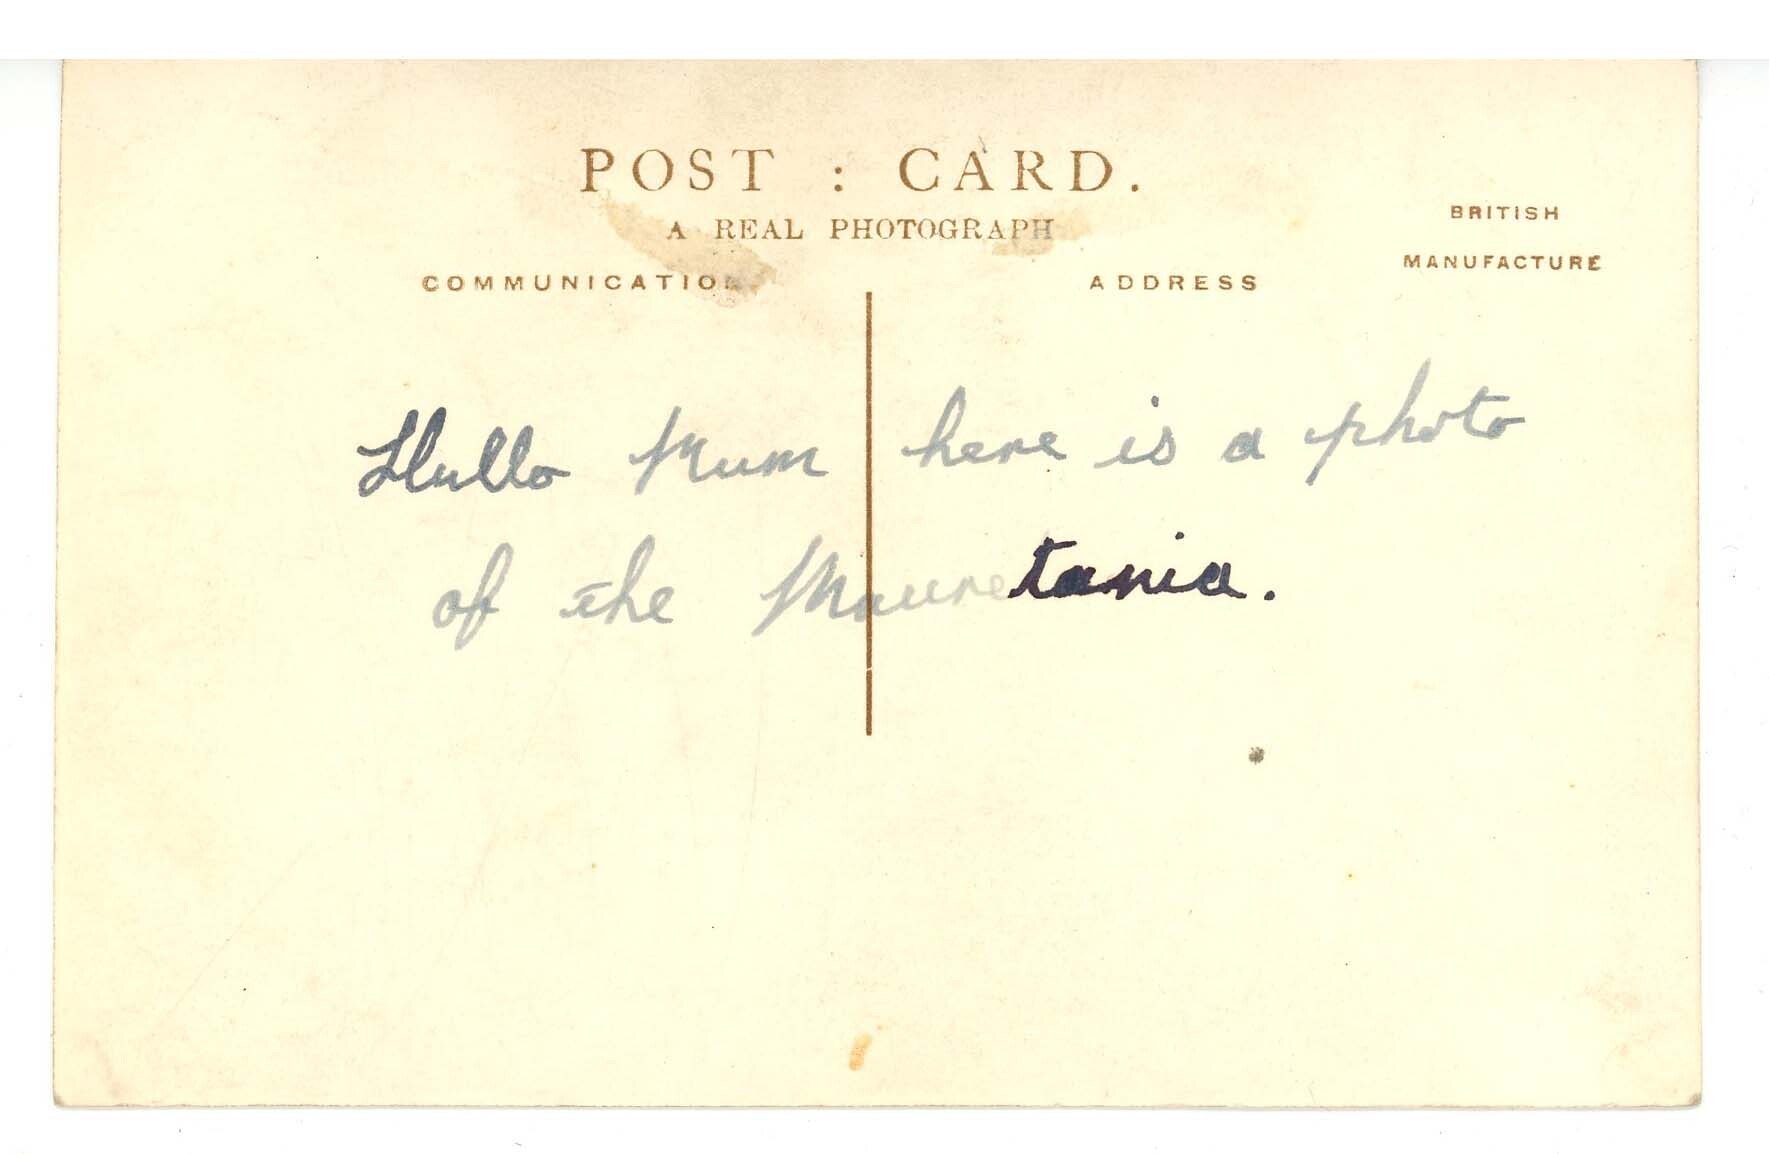 POST : CARD.
A REAL PHOTOGRAPH
BRITISH
MANUFACTURE
COMMUNICATION
ADDRESS
Hullo Mum here is a photo
of the Mauretania.